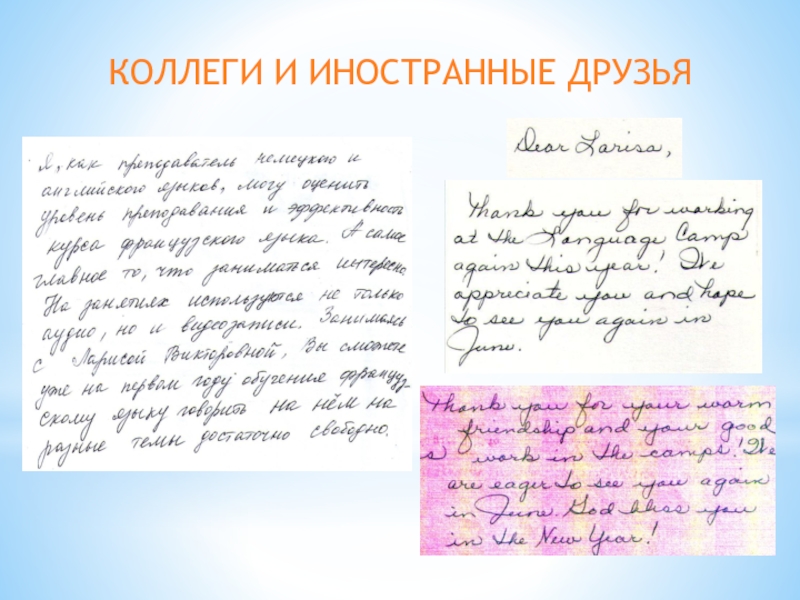 КОЛЛЕГИ И ИНОСТРАННЫЕ ДРУЗЬЯ
Я, как преподаватель немецкого и
английского языков, могу оценить
уровень преподавания и эффективность
курса французского языка. А самое
главное то, что заниматься интересно.
На занятиях используются не только
аудио, но и видеозаписи. Занимаясь
с Ларисой Викторовной, Вы сможете
уже на первом году обучения француз-
скому языку говорить на нём на
разные темы достаточно свободно.
Dear Larisa,
Thank you for working
at the Language Camp
again this year! We
appreciate you and hope
to see you again in
June.
Thank you for your warm
friendship and your good
s work in the camps! We
are eager to see you again
in June. God bless you
in the New Year!